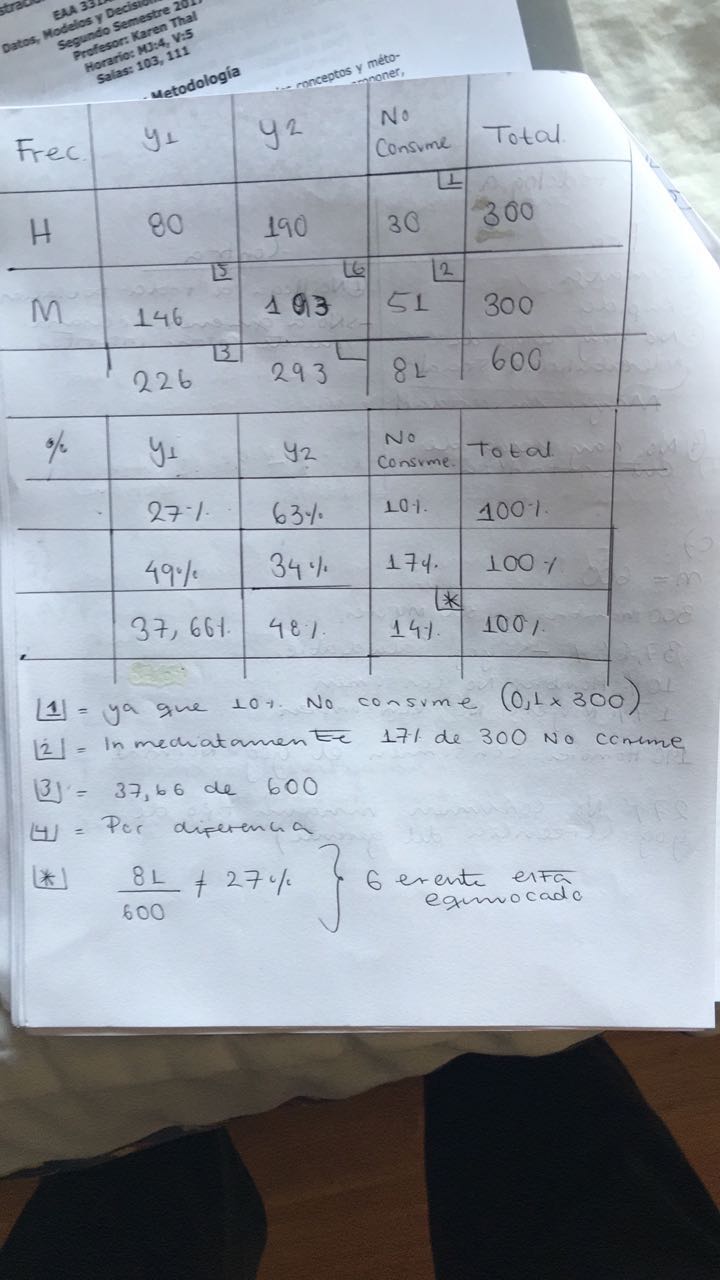 EAA 331
Datos, Modelos y Decision
Segundo Semestre 201
Profesor: Karen Thal
Horario: MJ:4, V:5
Salas: 103, 111
Metodología
conceptos y méto-
Frec. y1 y2 No Consume Total.
1
H 80 190 30 300
5 6 2
M 146 103 51 300
3
226 293 81 600
% y1 y2 No Consume. Total
27% 63% 10% 100%
49% 34% 17% 100%
*
37,66% 48% 14% 100%
1 = ya que 10% No consume (0,1 x 300)
2 = Inmediatamente 17% de 300 No conume
3 = 37,66 de 600
4 = Por diferencia
* 81/600 ≠ 27% } Gerente esta
equivocado